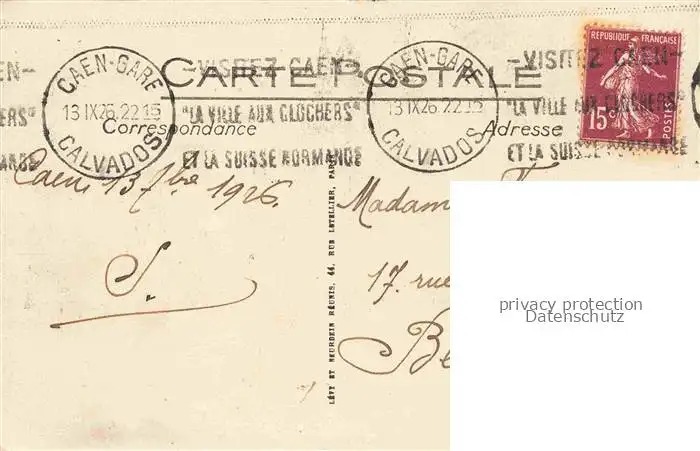 CAEN-GARE
13 IX26.2215
CALVADOS
-VISITEZ CAEN-
"LA VILLE AUX CLOCHERS"
ET LA SUISSE NORMANDE
CAEN-GARE
13 IX26.2215
CALVADOS
-VISITEZ CAEN-
"LA VILLE AUX CLOCHERS"
ET LA SUISSE NORMANDE
CARTE POSTALE
Correspondance
Adresse
REPUBLIQUE FRANÇAISE
15c
POSTES
Caen 13 7bre 1926.
S.
LÉVY ET NEURDEIN RÉUNIS, 44, RUE LETELLIER, PARIS
Madam
17. rue
Be
privacy protection
Datenschutz